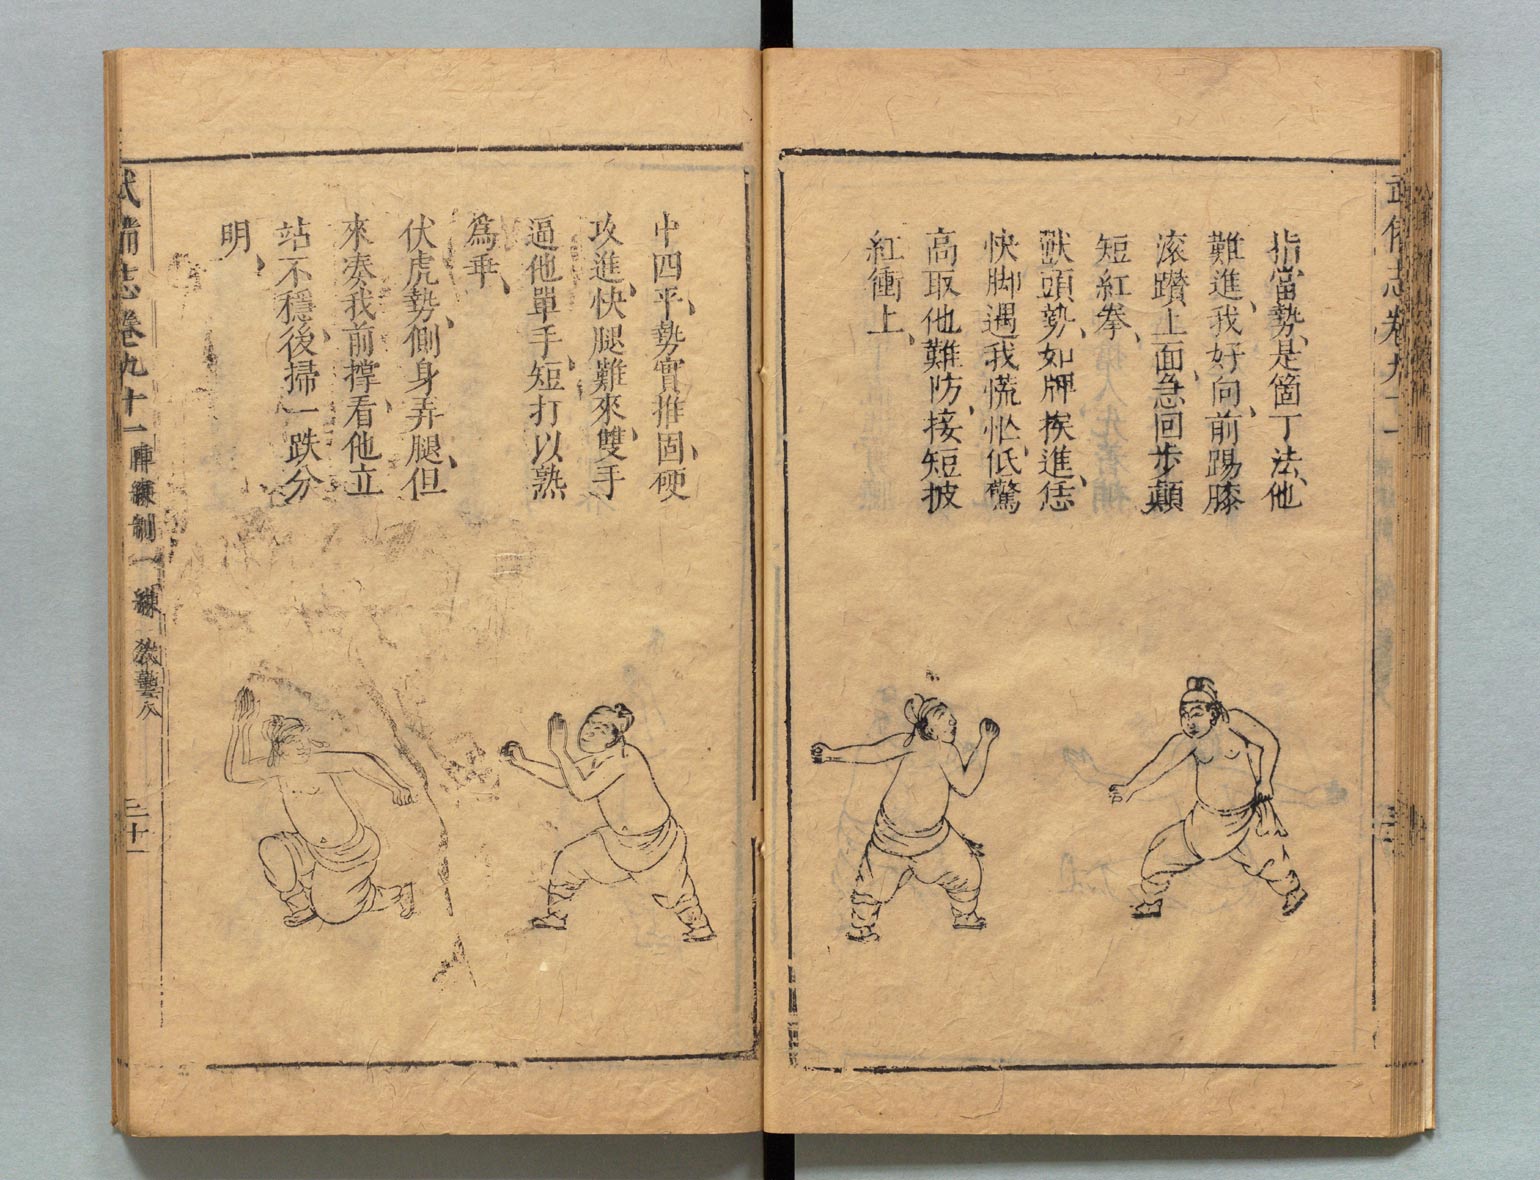 指當勢、是箇丁法、他
難進、我好向前、踢膝
滚躦上面、急回步顛
短紅拳、
獸頭勢、如牌挨進、恁
快脚遇我慌忙、低驚
高取他難防、接短披
紅衝上、
中四平、勢實推固、硬
攻進、快腿難來、雙手
逼他單手、短打以熟
為乖、
伏虎勢、側身弄腿、但
來凑我前撐、看他立
站不穩、後掃一跌分
明、
武備志卷九十一 陣練制一練 教藝八
二十一